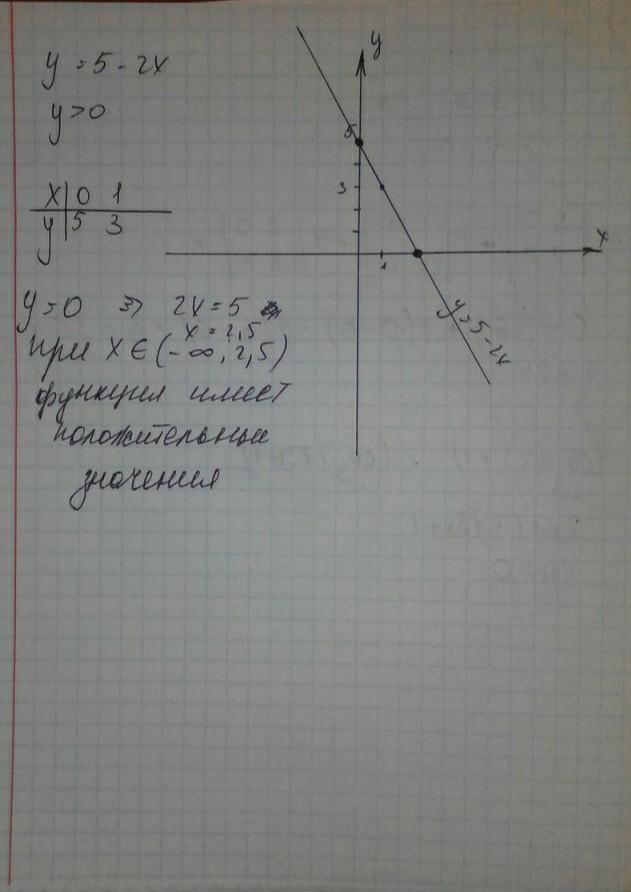 y = 5 - 2x
y > 0
x 0 1
y 5 3
y = 0 ⇒ 2x = 5
x = 2,5
при x ∈ (-∞, 2,5)
функция имеет
положительные
значения
y
5
3
1
x
y = 5 - 2x